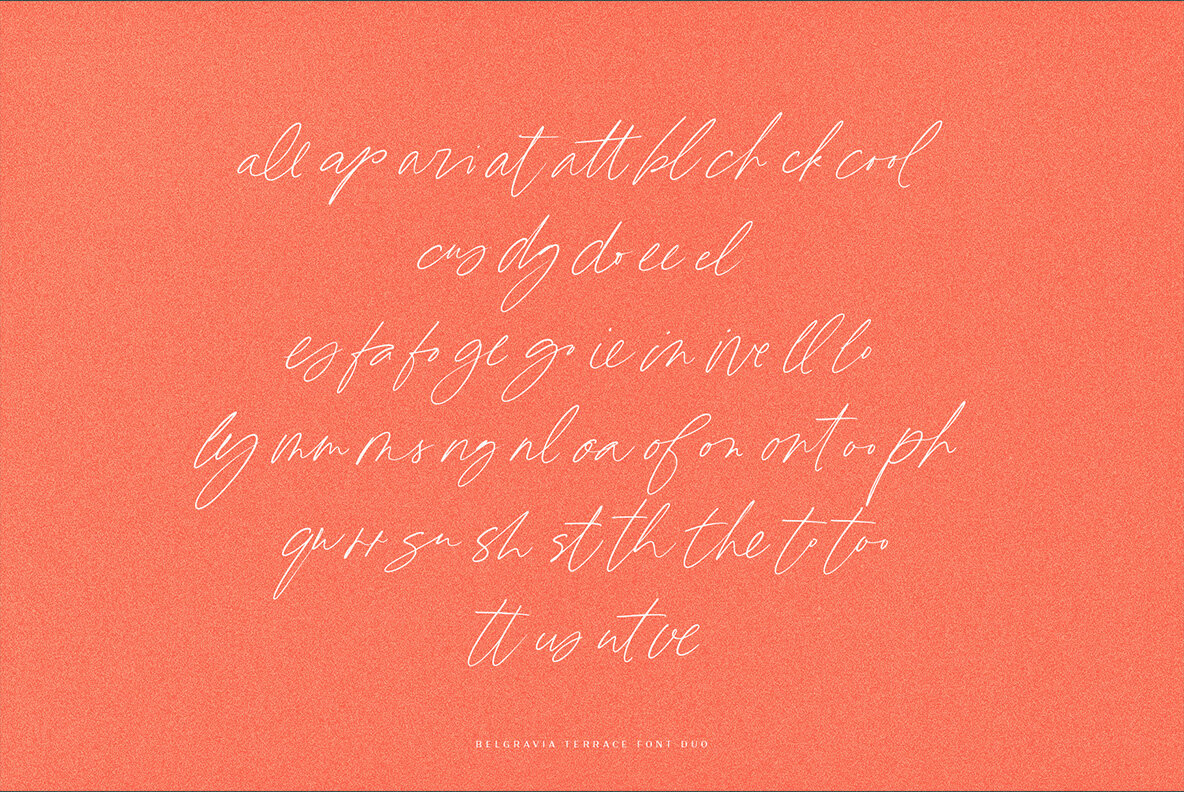 all ap ari at att bl ch ck cool
cus dg do ee el
es fa fo ge go ie in ive ll lo
ly mm ms ng nl oa of on ont oo ph
qu rr su sh st th the to too
tt us ut ve
BELGRAVIA TERRACE FONT DUO